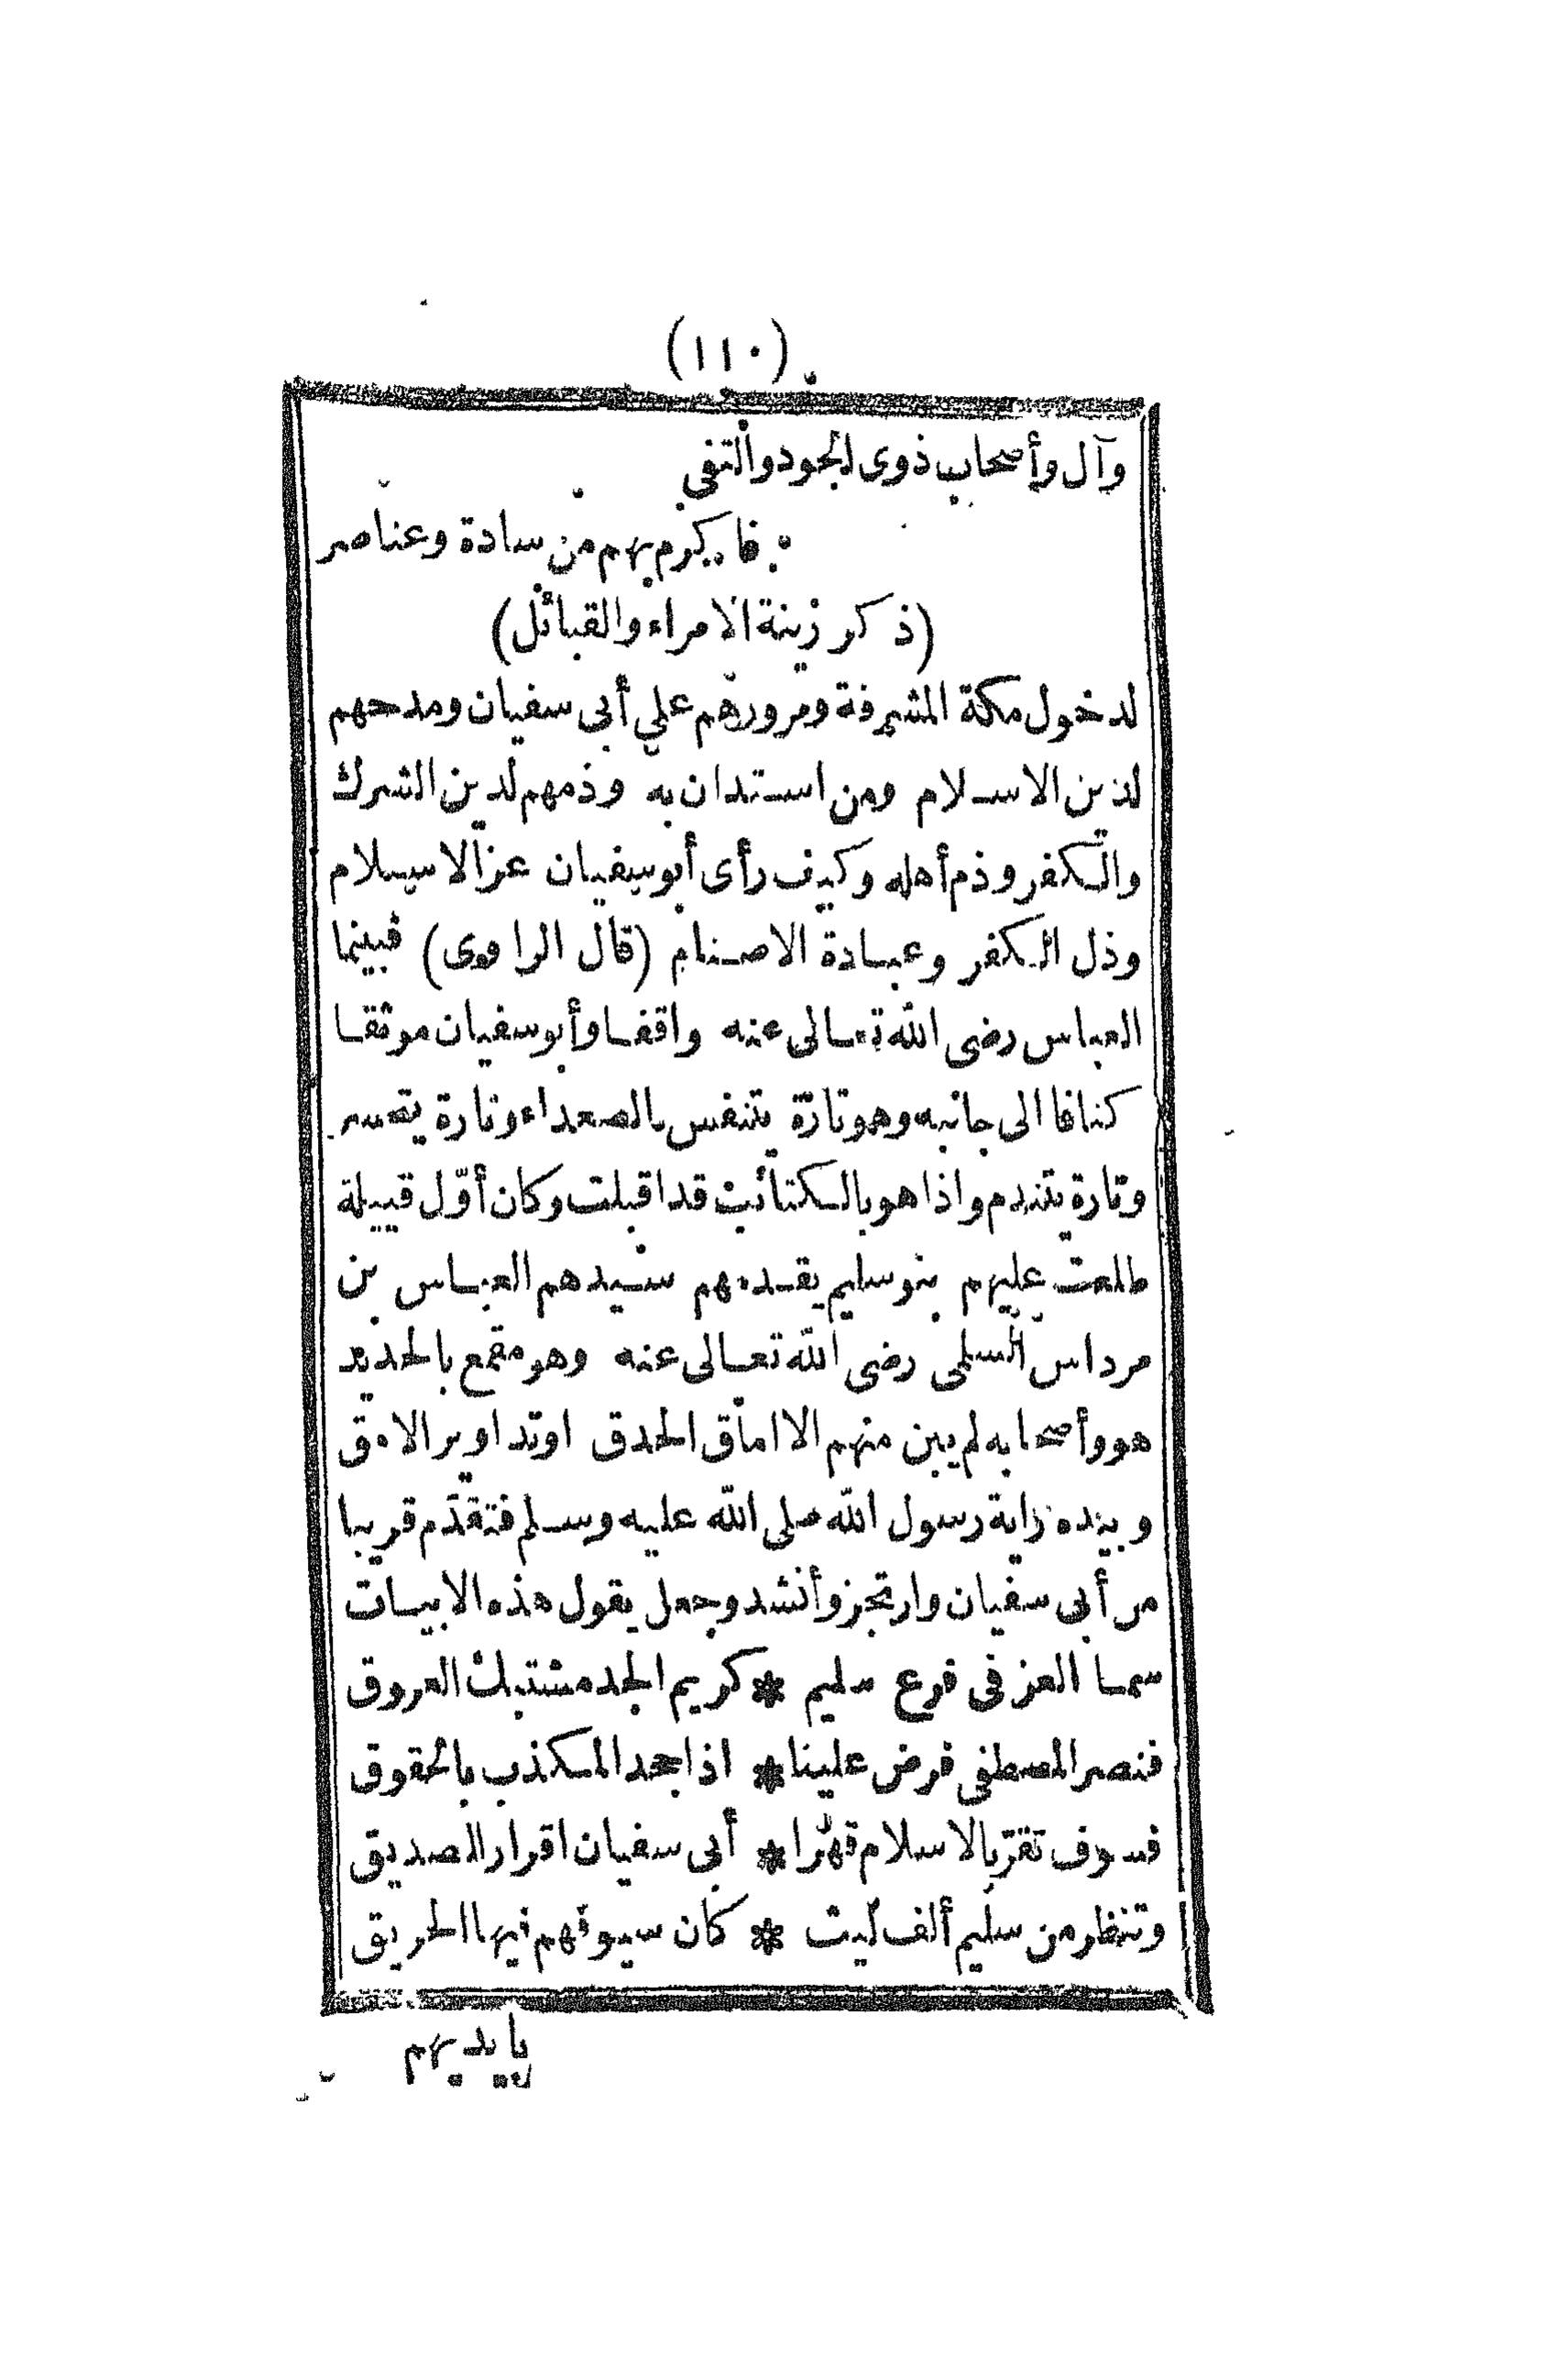 (١١٠)
وآل وأصحاب ذوى الجود والتقى
فاكرم بهم من سادة وعناصر
(ذكر زينة الامراء والقبائل)
لدخول مكة المشرفة ومرورهم على أبى سفيان ومدحهم
لدين الاسلام ومن استدان به وذمهم لدين الشرك
والكفر وذم أهله وكيف رأى أبو سفيان عز الاسلام
وذل الكفر وعبادة الاصنام (قال الراوى) فبينما
العباس رضى الله تعالى عنه واقفا وأبو سفيان موثقا
كتافا الى جانبه وهو تارة يتنفس بالصعداء وتارة يتحسر
وتارة يتندم واذا هو بالكتائب قد اقبلت وكان أوّل قبيلة
طلعت عليهم بنو سليم يقدمهم سيدهم العباس بن
مرداس السلمى رضى الله تعالى عنه وهو مقمع بالحديد
هو وأصحابه لم يبن منهم الا اماق الحدق او تداوير الامق
وبيده راية رسول الله صلى الله عليه وسلم فتقدّم قريبا
من أبى سفيان وارتجز وأنشد وجعل يقول هذه الابيات
سما العز فى فرع سليم * كريم الجد مشتبك العروق
فنصر المصطفى فرض علينا * اذا جحد المكذب بالحقوق
فسوف تقرّ بالاسلام قهرا * أبى سفيان اقرار الصديق
وتنظر من سليم ألف ليث * كان سيوفهم فيها الحريق
بايديهم